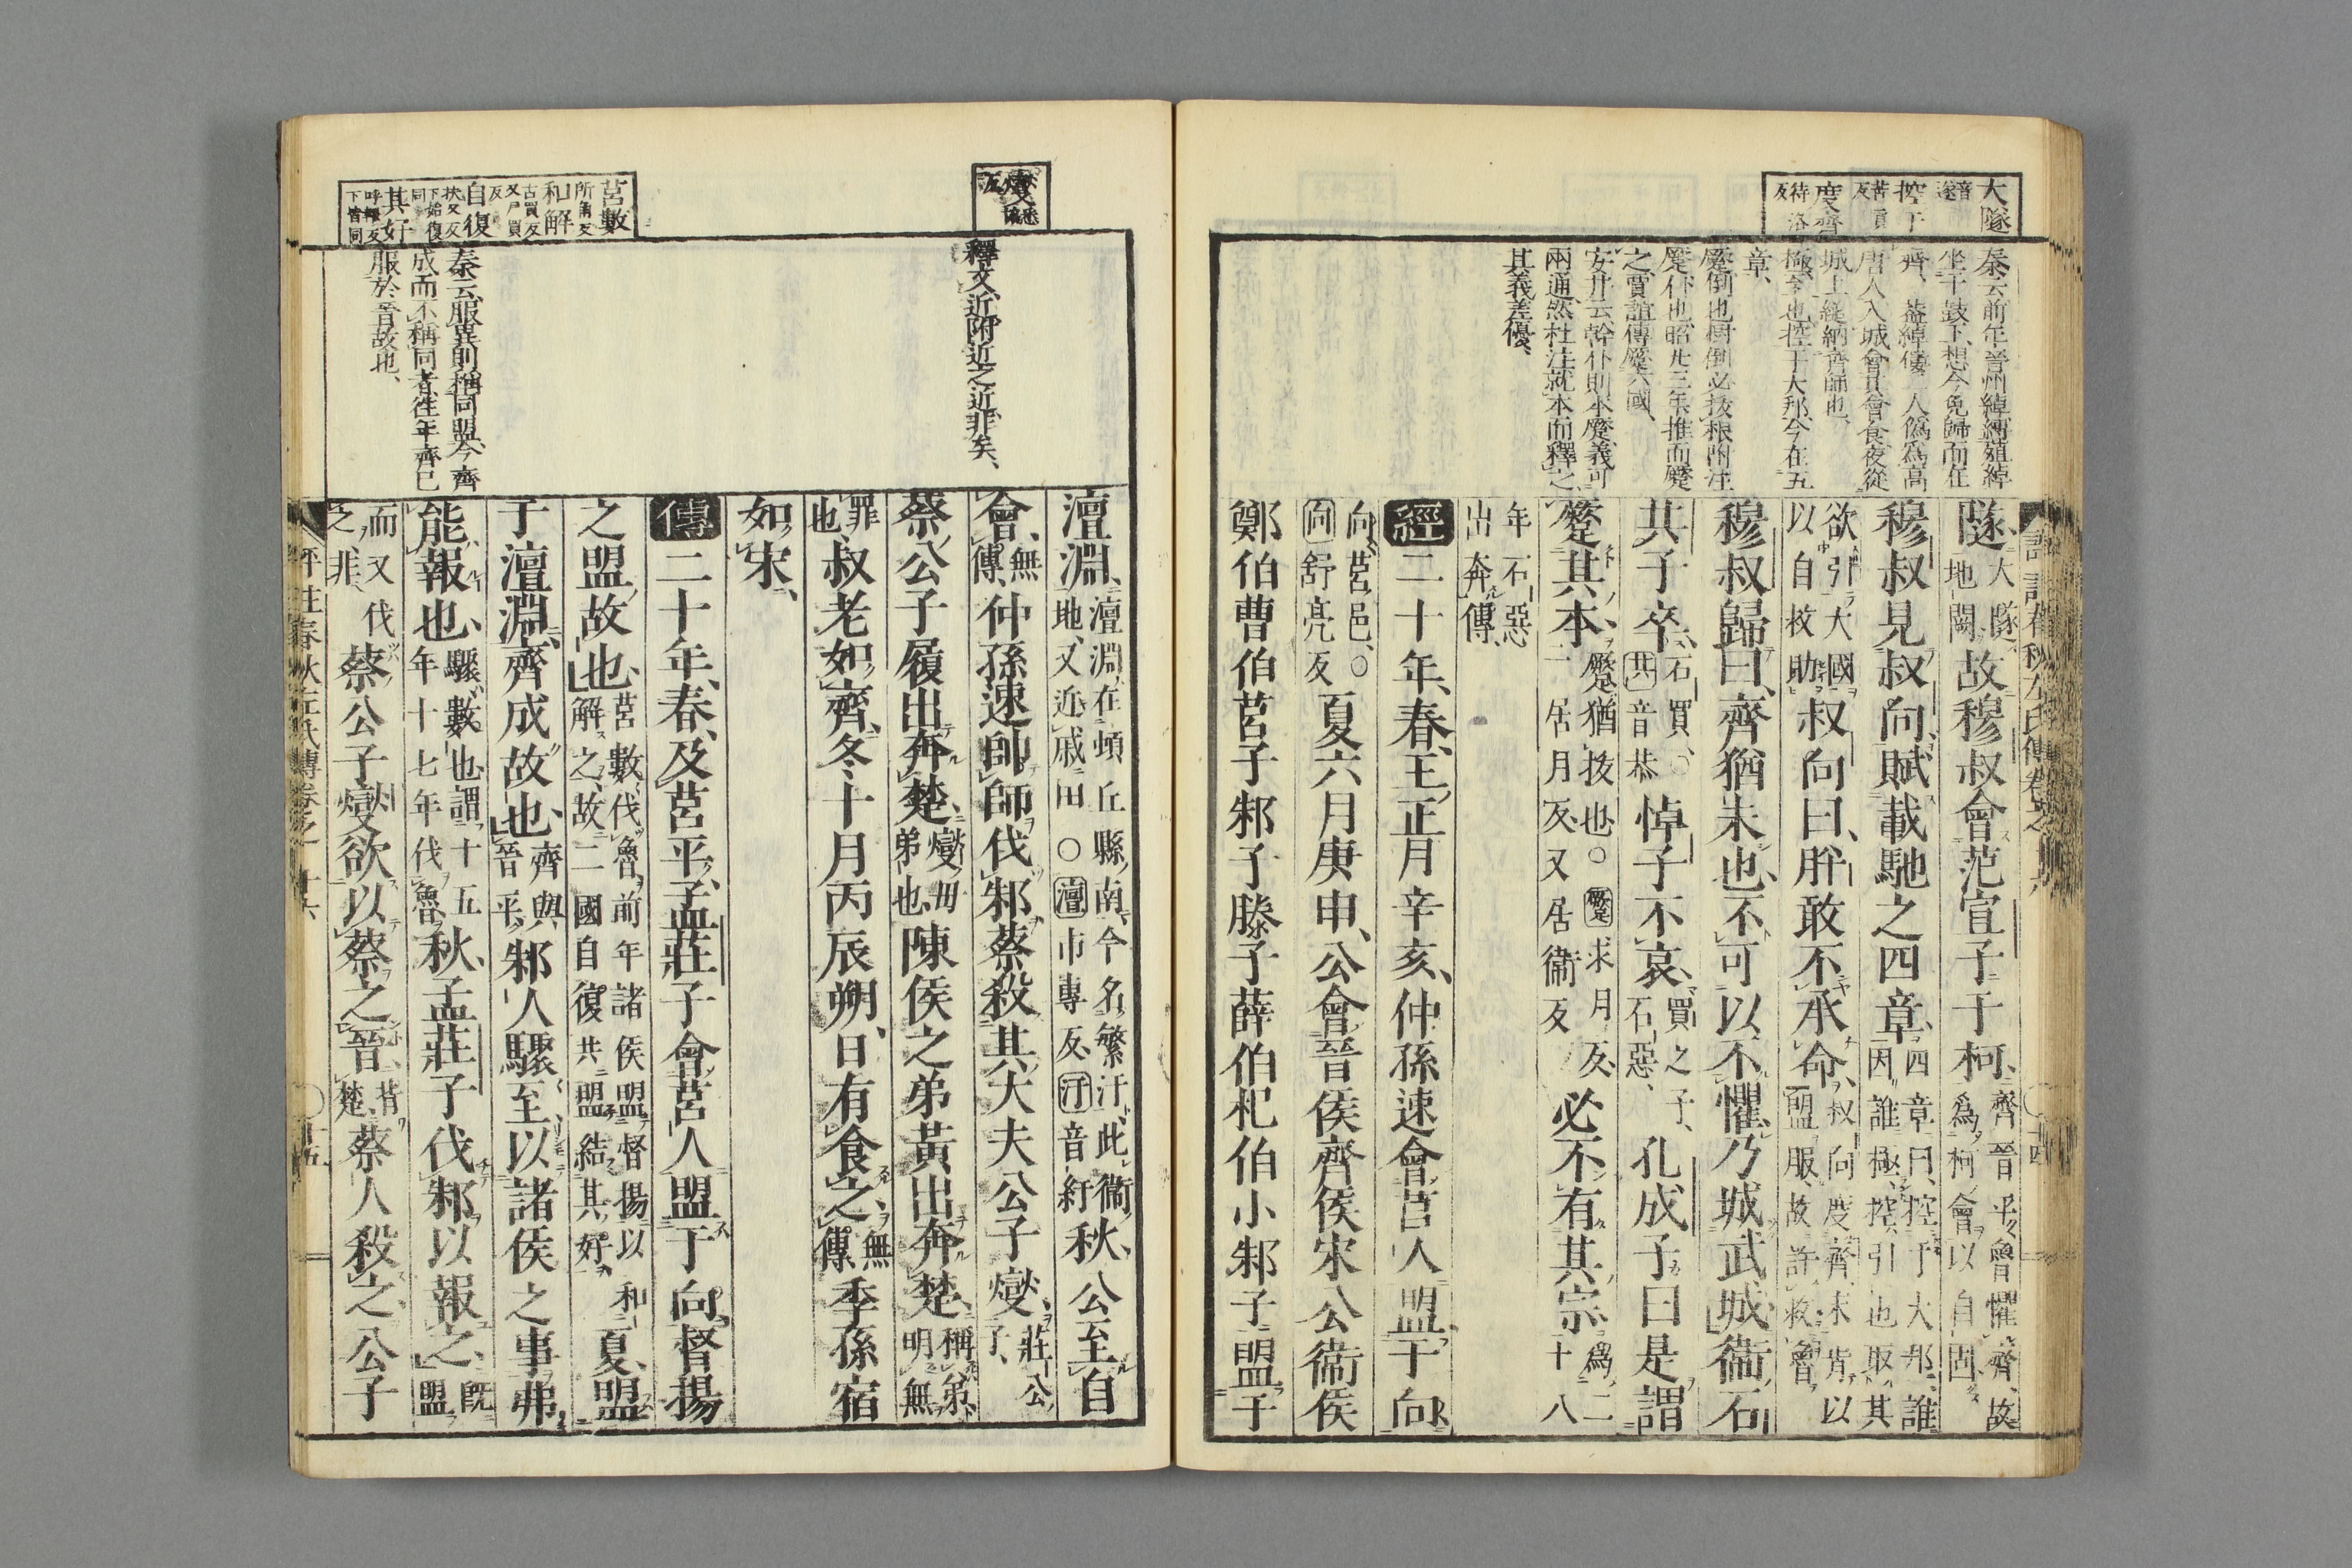 大隧
音遂
控于
苦貢反
度齊
待洛反
秦云前年晉州綽縛殖綽
坐于鼓下想今免歸而在
齊、蓋綽僂二人僞爲高
唐人入城會其會食夜從
城上縋納齊師也、
極至也控于大邦、今在五
章、
蹷倒也樹倒必拔根附注
蹷仆也、昭廿三年推而蹷
之、賈誼傳蹷六國、
安井云、幹仆則本蹷義可
兩通、然杜注就本而釋之、
其義差優、
隧、大隧、地闕故穆叔會范宣子于柯、齊晉平、魯懼齊、故爲柯會以自固
穆叔見叔向、賦載馳之四章、四章曰、控于大邦、誰因誰極、控引也、取其
欲引大國以自救助叔向曰、肸敢不承命、叔向度齊未肯以盟服、故許救魯
穆叔歸曰、齊猶未也、不可以不懼、乃城武城、衞石
共子卒、石買、○共音恭悼子不哀、買之子、石惡、孔成子曰、是謂
蹷其本、蹷猶拔也、○蹷求月反、一居月反、又居衞反必不有其宗、爲二十八
年石惡出奔傳、
經二十年、春、王正月辛亥、仲孫速會莒人盟于向、
向、莒邑、○向舒亮反夏六月庚申、公會晉侯齊侯宋公衞侯
鄭伯曹伯莒子邾子滕子薛伯杞伯小邾子盟于
釋文、近附近之近、非矣、
澶淵、澶淵、在頓丘縣南、今名繁汙、此衞地、又近戚田○澶市專反、汙音紆秋、公至自
會、無傳、仲孫速帥師伐邾、蔡殺其大夫公子燮、莊公子、
蔡公子履出奔楚、燮母弟也、陳侯之弟黃出奔楚、稱弟、明無
罪也、叔老如齊、冬、十月丙辰朔、日有食之、無傳、季孫宿
如宋、
傳二十年、春、及莒平、孟莊子會莒人盟于向、督揚
之盟故也、莒數伐魯、前年諸侯盟督揚以和解之、故二國自復共盟結其好、夏、盟
于澶淵、齊成故也、齊與晉平、邾人驟至、以諸侯之事、弗
能報也、驟、數也、謂十五年十七年伐魯、秋、孟莊子伐邾、以報之、既盟
而又伐之、非、蔡公子燮欲以蔡之晉、背楚、蔡人殺之、公子
莒數
所角反
和解
古買反又尸買反
自復
扶又反下始復同
其好
呼報反下皆同
秦云服異則稱同盟、今齊
成而不稱同者、往年齊已
服於晉故也、
評註春秋左氏傳卷之十六
十五